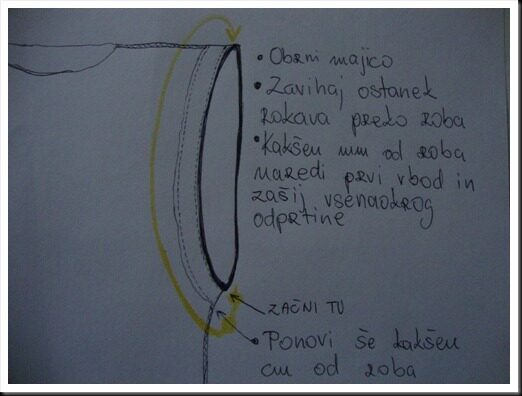 • Obrni majico
• Zavihaj ostanek
rokava preko roba
• Kakšen mm od roba
naredi prvi vbod in
zašij vsenaokrog
odprtine
ZAČNI TU
• Ponovi še kakšen
cm od roba